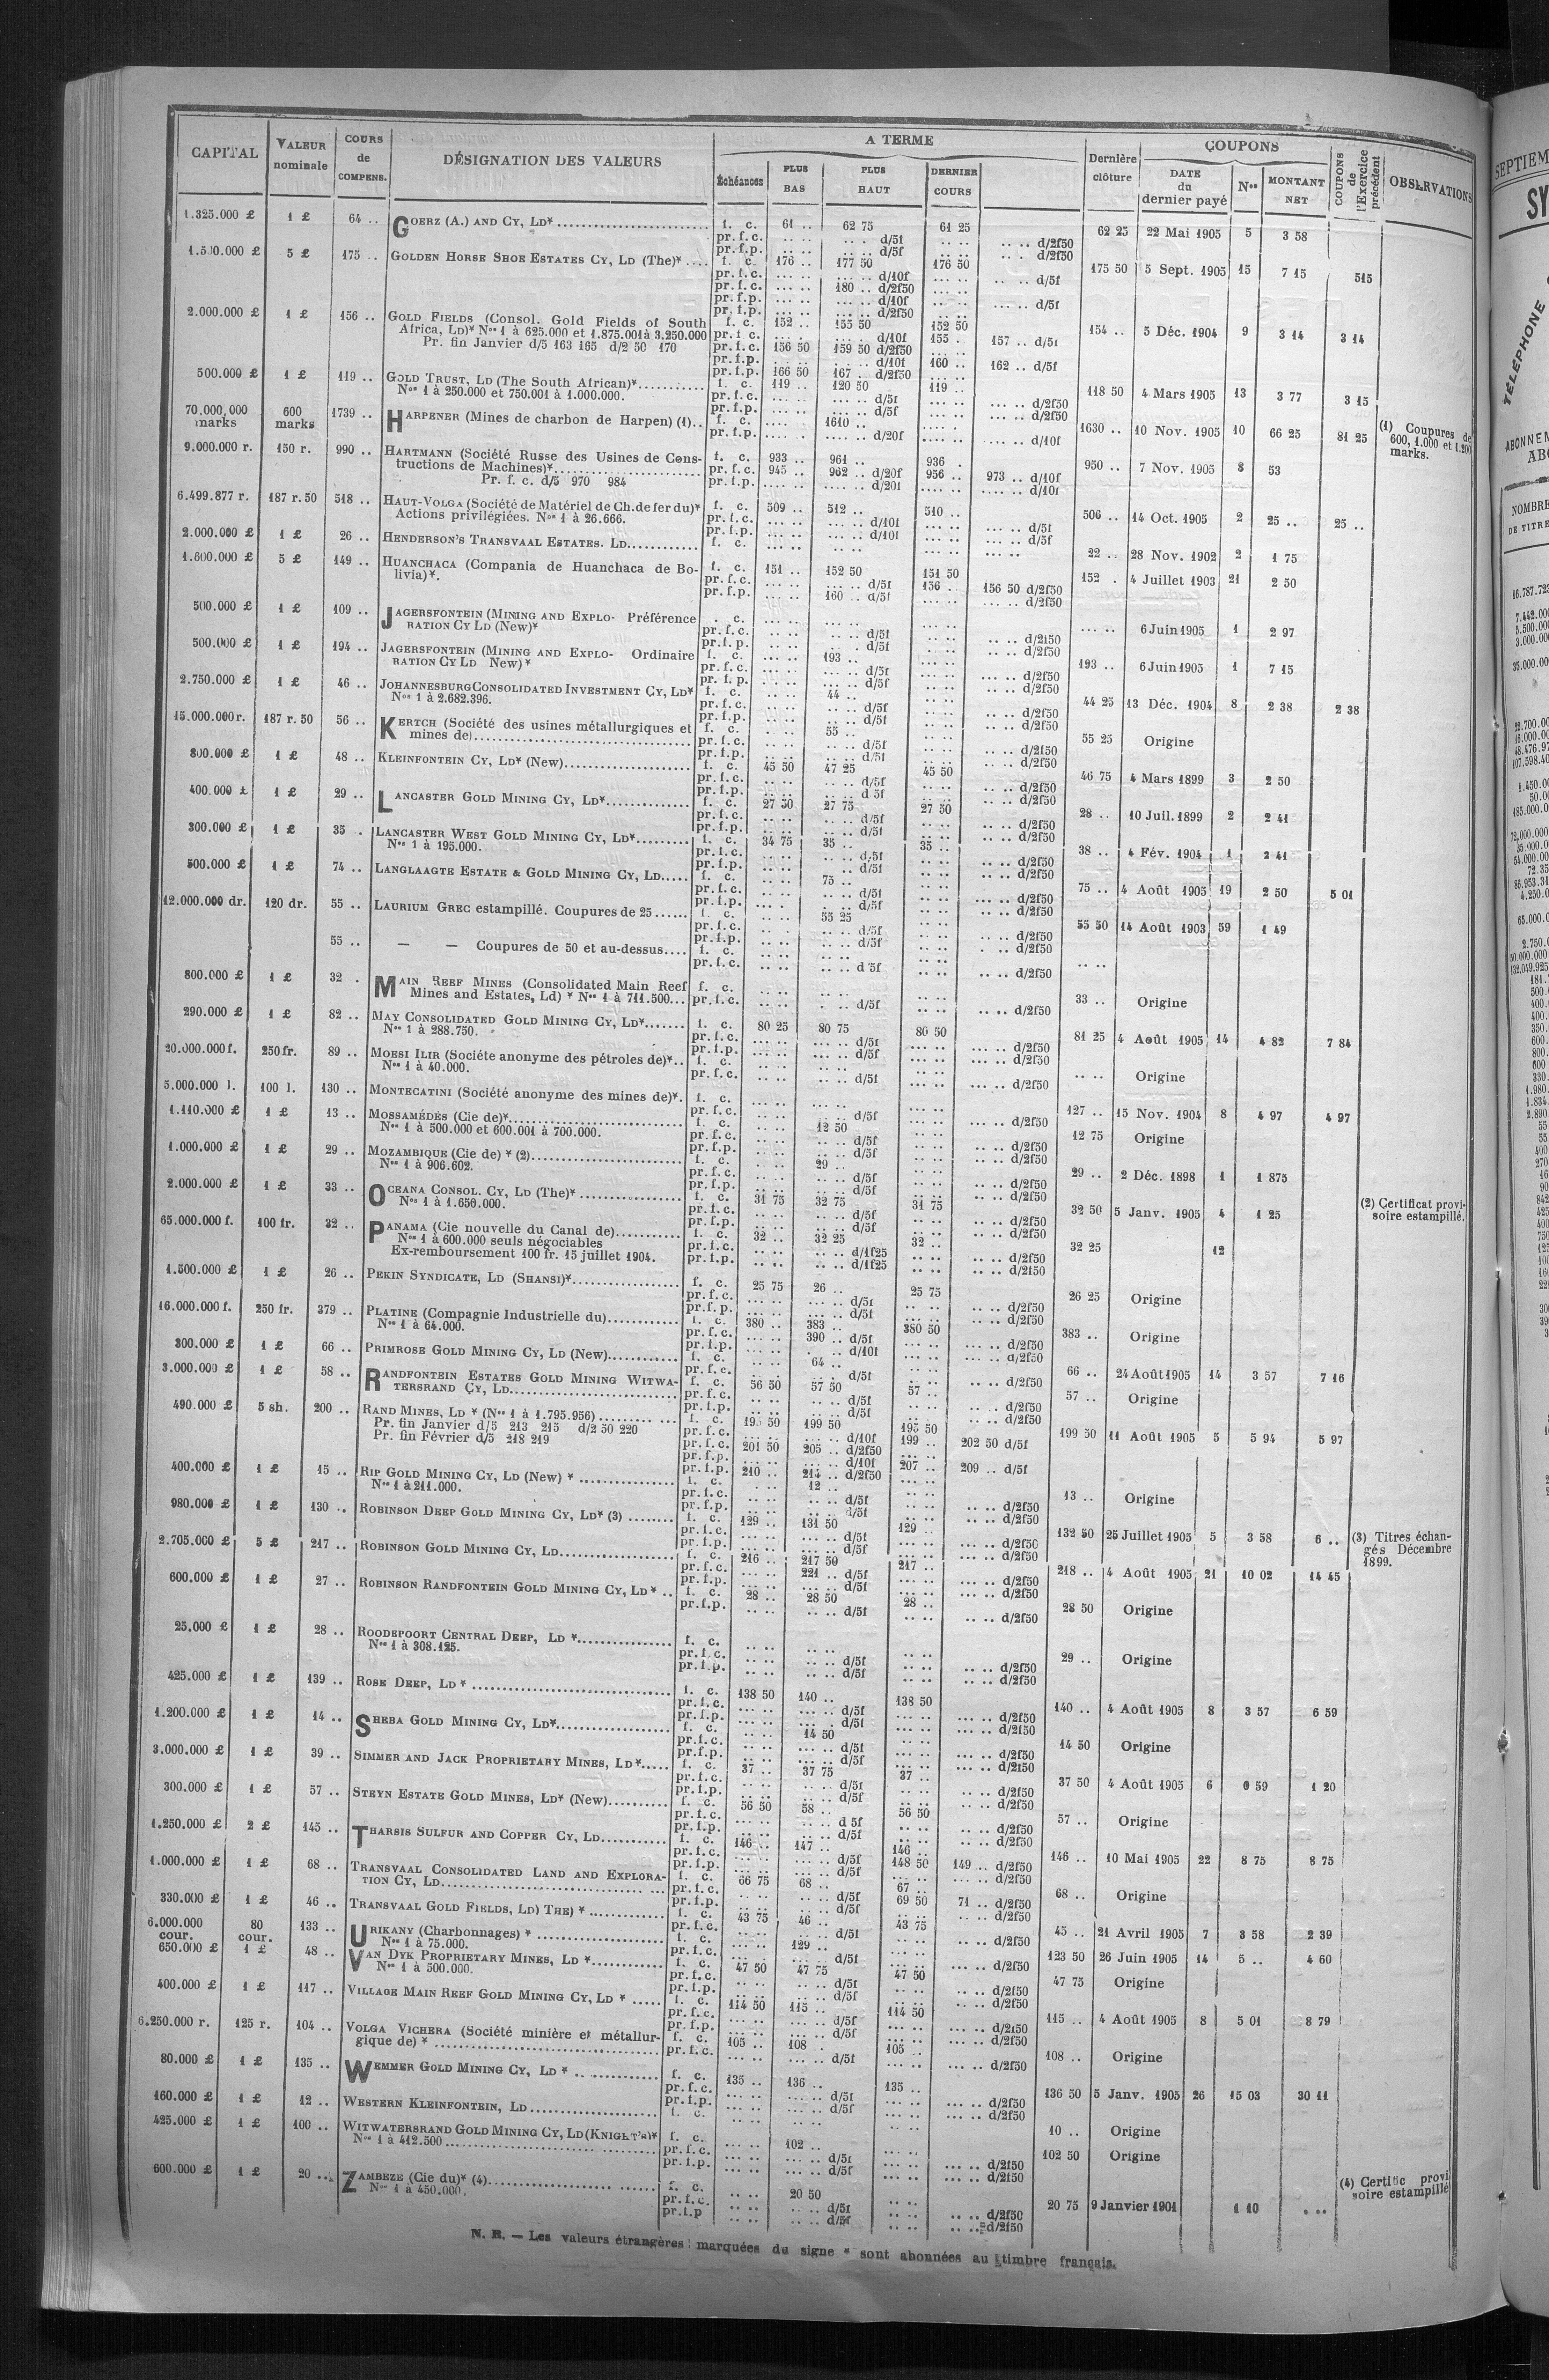 CAPITAL | VALEUR nominale | COURS de COMPENS. | DÉSIGNATION DES VALEURS | A TERME | Dernière clôture | COUPONS | COUPONS de l'Exercice précédent | OBSERVATIONS
Échéances | PLUS BAS | PLUS HAUT | DERNIER COURS | DATE du dernier payé | Nos | MONTANT NET
1.325.000 £ 1 £ 64 .. GOERZ (A.) AND CY, LD* f. c. 61 .. 62 75 61 25 62 25 22 Mai 1905 5 3 58
pr. f. c. d/5f d/2f50
pr. f. p. d/5f d/2f50
5 £ 175 .. GOLDEN HORSE SHOE ESTATES CY, LD (The)* f. c. 176 .. 177 50 176 50 175 50 5 Sept. 1905 15 7 15 515
pr. f. c. d/10f d/5f
pr. f. c. 180 .. d/2f50
pr. f. p. d/10f d/5f
pr. f. p. d/2f50
2.000.000 £ 1 £ 156 .. GOLD FIELDS (Consol. Gold Fields of South f. c. 152 .. 155 50 152 50 154 .. 5 Déc. 1904 9 3 14 3 14
Africa, LD)* Nos 1 à 625.000 et 1.875.001 à 3.250.000 pr. f. c. d/10f 155 . 157 .. d/5f
Pr. fin Janvier d/5 163 165 d/2 50 170 pr. f. c. 156 50 159 50 d/2f50
pr. f. p. d/10f 160 .. 162 .. d/5f
pr. f. p. 166 50 167 .. d/2f50
500.000 £ 1 £ 119 .. GOLD TRUST, LD (The South African)* f. c. 119 .. 120 50 119 .. 118 50 4 Mars 1905 13 3 77 3 15
Nos 1 à 250.000 et 750.001 à 1.000.000. pr. f. c. d/5f d/2f50
pr. f. p. d/5f d/2f50
70.000.000 marks 600 marks 1739 .. HARPENER (Mines de charbon de Harpen) (1) f. c. 1610 .. 1630 .. 10 Nov. 1905 10 66 25 81 25 (1) Coupures de 600, 1.000 et 1.200 marks.
pr. f. p. d/20f d/10f
9.000.000 r. 150 r. 990 .. HARTMANN (Société Russe des Usines de Cons- f. c. 933 .. 961 .. 936 . 950 .. 7 Nov. 1905 8 53
tructions de Machines)* pr. f. c. 945 .. 962 .. d/20f 956 .. 973 .. d/10f
Pr. f. c. d/5 970 984 pr. f. p. d/20f d/10f
6.499.877 r. 187 r. 50 518 .. HAUT-VOLGA (Société de Matériel de Ch. de fer du)* f. c. 509 .. 512 .. 510 .. 506 .. 14 Oct. 1905 2 25 .. 25 ..
Actions privilégiées. Nos 1 à 26.666. pr. f. c. d/10f d/5f
pr. f. p. d/10f d/5f
2.000.000 £ 1 £ 26 .. HENDERSON'S TRANSVAAL ESTATES. LD f. c. 22 .. 28 Nov. 1902 2 1 75
1.600.000 £ 5 £ 149 .. HUANCHACA (Compania de Huanchaca de Bo- f. c. 151 .. 152 50 151 50 152 . 4 Juillet 1903 21 2 50
livia)*. pr. f. c. d/5f 156 .. 156 50 d/2f50
pr. f. p. 160 .. d/5f d/2f50
500.000 £ 1 £ 109 .. JAGERSFONTEIN (MINING AND EXPLO- Préférence . c. 6 Juin 1905 1 2 97
RATION CY LD (New)* pr. f. c. d/5f d/2f50
pr. f. p. d/5f d/2f50
500.000 £ 1 £ 194 .. JAGERSFONTEIN (MINING AND EXPLO- Ordinaire f. c. 193 .. 193 .. 6 Juin 1905 1 7 15
RATION CY LD New)* pr. f. c. d/5f d/2f50
pr. f. p. d/5f d/2f50
2.750.000 £ 1 £ 46 .. JOHANNESBURG CONSOLIDATED INVESTMENT CY, LD* f. c. 44 .. 44 25 13 Déc. 1904 8 2 38 2 38
Nos 1 à 2.682.396. pr. f. c. d/5f d/2f50
pr. f. p. d/5f d/2f50
15.000.000 r. 187 r. 50 56 .. KERTCH (Société des usines métallurgiques et f. c. 55 .. 55 25 Origine
mines de) pr. f. c. d/5f d/2f50
pr. f. p. d/5f d/2f50
800.000 £ 1 £ 48 .. KLEINFONTEIN CY, LD* (New) f. c. 45 50 47 25 45 50 46 75 4 Mars 1899 3 2 50
pr. f. c. d/5f d/2f50
pr. f. p. d 5f d/2f50
400.000 £ 1 £ 29 .. LANCASTER GOLD MINING CY, LD* f. c. 27 50 27 75 27 50 28 .. 10 Juil. 1899 2 2 41
pr. f. c. d/5f d/2f50
pr. f. p. d/5f d/2f50
300.000 £ 1 £ 35 . LANCASTER WEST GOLD MINING CY, LD* f. c. 34 75 35 .. 35 .. 38 .. 4 Fév. 1904 1 2 41
Nos 1 à 195.000. pr. f. c. d/5f d/2f50
pr. f. p. d/5f d/2f50
500.000 £ 1 £ 74 .. LANGLAAGTE ESTATE & GOLD MINING CY, LD f. c. 75 .. 75 .. 4 Août 1905 19 2 50 5 01
pr. f. c. d/5f d/2f50
pr. f. p. d/5f d/2f50
12.000.000 dr. 120 dr. 55 .. LAURIUM GREC estampillé. Coupures de 25 f. c. 55 25 55 50 14 Août 1903 59 1 49
pr. f. c. d/5f d/2f50
pr. f. p. d/5f d/2f50
55 .. — — Coupures de 50 et au-dessus f. c.
pr. f. c. d 5f d/2f50
800.000 £ 1 £ 32 . MAIN REEF MINES (Consolidated Main Reef f. c. 33 .. Origine
Mines and Estates, Ld) * Nos 1 à 711.500 pr. f. c. d/5f d/2f50
290.000 £ 1 £ 82 .. MAY CONSOLIDATED GOLD MINING CY, LD* f. c. 80 25 80 75 80 50 81 25 4 Août 1905 14 4 82 7 84
Nos 1 à 288.750. pr. f. c. d/5f d/2f50
pr. f. p. d/5f d/2f50
20.000.000 f. 250 fr. 89 .. MOESI ILIR (Société anonyme des pétroles de)* f. c. Origine
Nos 1 à 40.000. pr. f. c. d/5f d/2f50
5.000.000 l. 100 l. 130 .. MONTECATINI (Société anonyme des mines de)*. f. c. 127 .. 15 Nov. 1904 8 4 97 4 97
pr. f. c. d/5f d/2f50
1.110.000 £ 1 £ 13 .. MOSSAMÉDÈS (Cie de)* f. c. 12 50 12 75 Origine
Nos 1 à 500.000 et 600.001 à 700.000. pr. f. c. d/5f d/2f50
pr. f. p. d/5f d/2f50
1.000.000 £ 1 £ 29 .. MOZAMBIQUE (Cie de) * (2) f. c. 29 .. 29 .. 2 Déc. 1898 1 1 875
Nos 1 à 906.602. pr. f. c. d/5f d/2f50
pr. f. p. d/5f d/2f50
2.000.000 £ 1 £ 33 .. OCEANA CONSOL. CY, LD (The)* f. c. 31 75 32 75 31 75 32 50 5 Janv. 1905 4 1 25 (2) Certificat provi-soire estampillé.
Nos 1 à 1.650.000. pr. f. c. d/5f d/2f50
pr. f. p. d/5f d/2f50
65.000.000 f. 100 fr. 32 .. PANAMA (Cie nouvelle du Canal de) f. c. 32 .. 32 25 32 .. 32 25 12
Nos 1 à 600.000 seuls négociables pr. f. c. d/1f25 d/2f50
Ex-remboursement 100 fr. 15 juillet 1904. pr. f. p. d/1f25 d/2f50
1.500.000 £ 1 £ 26 .. PEKIN SYNDICATE, LD (SHANSI)* f. c. 25 75 26 .. 25 75 26 25 Origine
pr. f. c. d/5f d/2f50
pr. f. p. d/5f d/2f50
16.000.000 f. 250 fr. 379 .. PLATINE (Compagnie Industrielle du) f. c. 380 .. 383 .. 380 50 383 .. Origine
Nos 1 à 64.000. pr. f. c. 390 .. d/5f d/2f50
pr. f. p. d/10f d/2f50
300.000 £ 1 £ 66 .. PRIMROSE GOLD MINING CY, LD (New) f. c. 64 .. 66 .. 24 Août 1905 14 3 57 7 16
pr. f. c. d/5f d/2f50
3.000.000 £ 1 £ 58 .. RANDFONTEIN ESTATES GOLD MINING WITWA- f. c. 56 50 57 50 57 .. 57 .. Origine
TERSRAND CY, LD pr. f. c. d/5f d/2f50
pr. f. p. d/5f d/2f50
490.000 £ 5 sh. 200 .. RAND MINES, LD * (Nos 1 à 1.795.956) f. c. 195 50 199 50 195 50 199 50 11 Août 1905 5 5 94 5 97
Pr. fin Janvier d/5 213 215 d/2 50 220 pr. f. c. d/10f 199 .. 202 50 d/5f
Pr. fin Février d/5 218 219 pr. f. c. 201 50 205 .. d/2f50
pr. f. p. d/10f 207 .. 209 .. d/5f
pr. f. p. 210 .. 214 .. d/2f50
400.000 £ 1 £ 15 .. RIP GOLD MINING CY, LD (New) * f. c. 12 .. 13 .. Origine
Nos 1 à 211.000. pr. f. c. d/5f d/2f50
pr. f. p. d/5f d/2f50
980.000 £ 1 £ 130 .. ROBINSON DEEP GOLD MINING CY, LD* (3) f. c. 129 .. 131 50 129 .. 132 50 25 Juillet 1905 5 3 58 6 .. (3) Titres échan-gés Décembre 1899.
pr. f. c. d/5f d/2f50
pr. f. p. d/5f d/2f50
2.705.000 £ 5 £ 217 .. ROBINSON GOLD MINING CY, LD f. c. 216 .. 217 50 217 .. 218 .. 4 Août 1905 21 10 02 14 45
pr. f. c. 221 .. d/5f d/2f50
pr. f. p. d/5f d/2f50
600.000 £ 1 £ 27 .. ROBINSON RANDFONTEIN GOLD MINING CY, LD * f. c. 28 .. 28 50 28 .. 28 50 Origine
pr. f. p. d/5f d/2f50
25.000 £ 1 £ 28 .. ROODEPOORT CENTRAL DEEP, LD * f. c. 29 .. Origine
Nos 1 à 308.125. pr. f. c. d/5f d/2f50
pr. f. p. d/5f d/2f50
425.000 £ 1 £ 139 .. ROSE DEEP, LD * f. c. 138 50 140 .. 138 50 140 .. 4 Août 1905 8 3 57 6 59
pr. f. c. d/5f d/2f50
pr. f. p. d/5f d/2f50
1.200.000 £ 1 £ 14 .. SHEBA GOLD MINING CY, LD* f. c. 14 50 14 50 Origine
pr. f. c. d/5f d/2f50
pr. f. p. d/5f d/2f50
3.000.000 £ 1 £ 39 .. SIMMER AND JACK PROPRIETARY MINES, LD* f. c. 37 .. 37 75 37 .. 37 50 4 Août 1905 6 0 59 1 20
pr. f. c. d/5f d/2f50
pr. f. p. d/5f d/2f50
300.000 £ 1 £ 57 .. STEYN ESTATE GOLD MINES, LD* (New) f. c. 56 50 58 .. 56 50 57 .. Origine
pr. f. c. d 5f d/2f50
pr. f. p. d/5f d/2f50
1.250.000 £ 2 £ 145 .. THARSIS SULFUR AND COPPER CY, LD f. c. 146 .. 147 .. 146 .. 146 .. 10 Mai 1905 22 8 75 8 75
pr. f. c. d/5f 148 50 149 .. d/2f50
pr. f. p. d/5f d/2f50
1.000.000 £ 1 £ 68 .. TRANSVAAL CONSOLIDATED LAND AND EXPLORA- f. c. 66 75 68 .. 67 .. 68 .. Origine
TION CY, LD pr. f. c. d/5f 69 50 71 .. d/2f50
pr. f. p. d/5f d/2f50
330.000 £ 1 £ 46 .. TRANSVAAL GOLD FIELDS, LD) THE) * f. c. 43 75 46 .. 43 75 45 .. 21 Avril 1905 7 3 58 2 39
pr. f. c. d/5f d/2f50
6.000.000 cour. 80 cour. 133 .. URIKANY (Charbonnages) * f. c. 129 .. 123 50 26 Juin 1905 14 5 .. 4 60
Nos 1 à 75.000. pr. f. c. d/5f d/2f50
650.000 £ 1 £ 48 .. VAN DYK PROPRIETARY MINES, LD * f. c. 47 50 47 75 47 50 47 75 Origine
Nos 1 à 500.000. pr. f. c. d/5f d/2f50
pr. f. p. d/5f d/2f50
400.000 £ 1 £ 117 .. VILLAGE MAIN REEF GOLD MINING CY, LD * f. c. 114 50 115 .. 114 50 115 .. 4 Août 1905 8 5 01 8 79
pr. f. c. d/5f d/2f50
pr. f. p. d/5f d/2f50
6.250.000 r. 125 r. 104 .. VOLGA VICHERA (Société minière et métallur- f. c. 105 .. 108 .. 105 .. 108 .. Origine
gique de) * pr. f. c. d/5f d/2f50
80.000 £ 1 £ 135 .. WEMMER GOLD MINING CY, LD * f. c. 135 .. 136 .. 135 .. 136 50 5 Janv. 1905 26 15 03 30 11
pr. f. c. d/5f d/2f50
pr. f. p. d/5f d/2f50
160.000 £ 1 £ 12 .. WESTERN KLEINFONTEIN, LD f. c. 10 .. Origine
425.000 £ 1 £ 100 .. WITWATERSRAND GOLD MINING CY, LD (KNIGHT'S)* f. c. 102 .. 102 50 Origine
Nos 1 à 412.500 pr. f. c. d/5f d/2f50
pr. f. p. d/5f d/2f50
600.000 £ 1 £ 20 .. ZAMBEZE (Cie du)* (4) f. c. 20 50 20 75 9 Janvier 1901 1 10 (4) Certific provi soire estampillé
Nos 1 à 450.000. pr. f. c. d/5f d/2f50
pr. f. p d/5f d/2f50
N. B. — Les valeurs étrangères marquées du signe * sont abonnées au timbre français.
SEPTIEM
SY
TÉLÉPHONE
ABONNEM
ABO
NOMBRE
DE TITRE